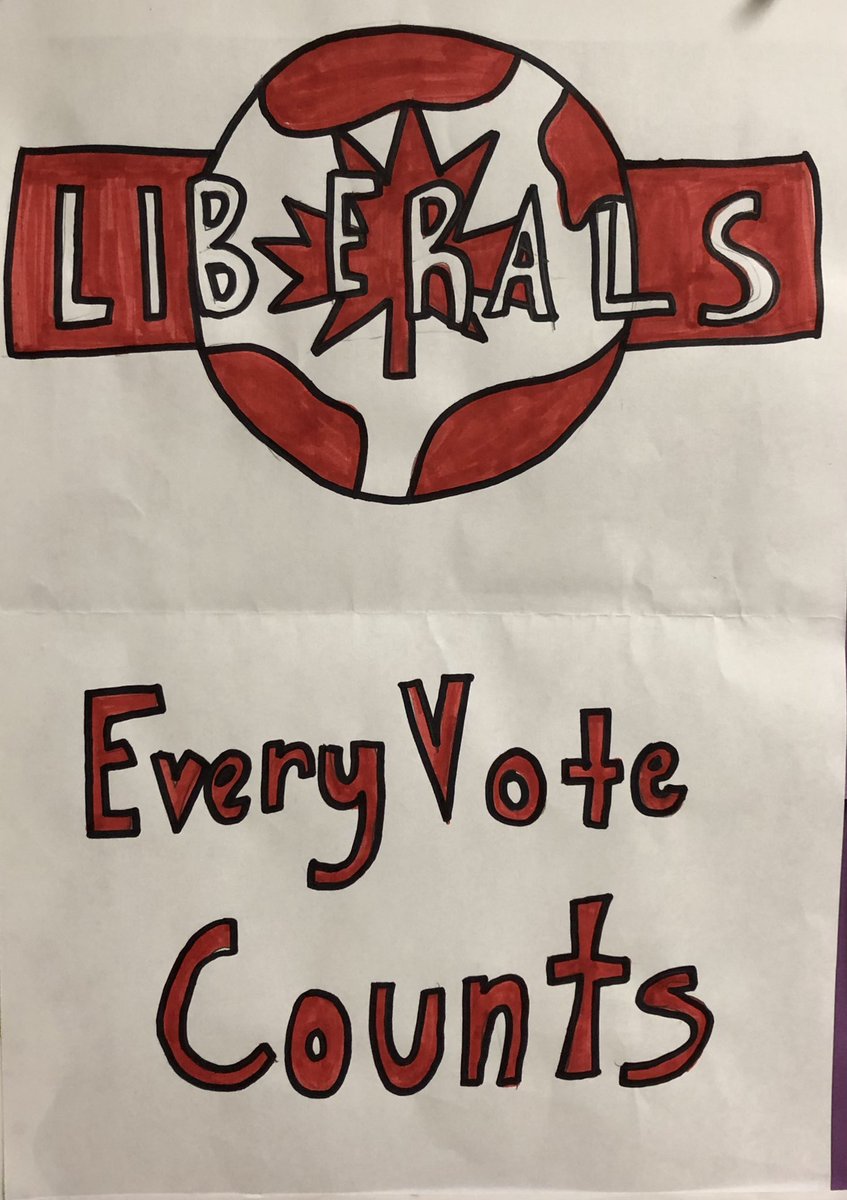 LIBERALS
Every Vote
Counts